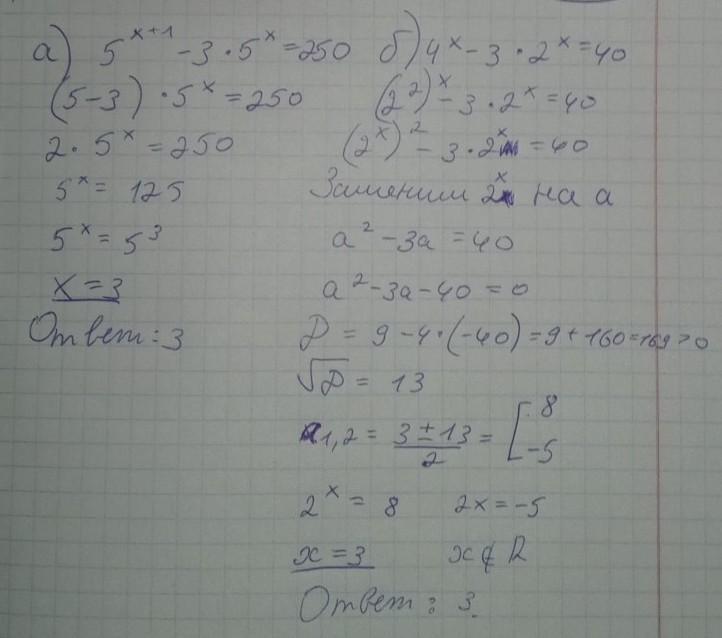 а) 5^{x+1} - 3 · 5^x = 250
(5-3) · 5^x = 250
2 · 5^x = 250
5^x = 125
5^x = 5^3
x = 3
Ответ: 3
б) 4^x - 3 · 2^x = 40
(2^2)^x - 3 · 2^x = 40
(2^x)^2 - 3 · 2^x = 40
Заменим 2^x на a
a^2 - 3a = 40
a^2 - 3a - 40 = 0
D = 9 - 4 · (-40) = 9 + 160 = 169 > 0
√D = 13
a1,2 = (3 ± 13)/2 = [ 8 -5
2^x = 8 2x = -5
x = 3 x ∉ R
Ответ: 3.